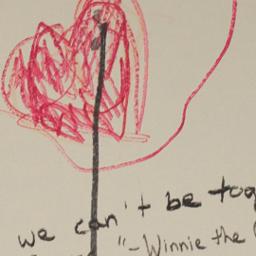 we can't be tog
"-Winnie the